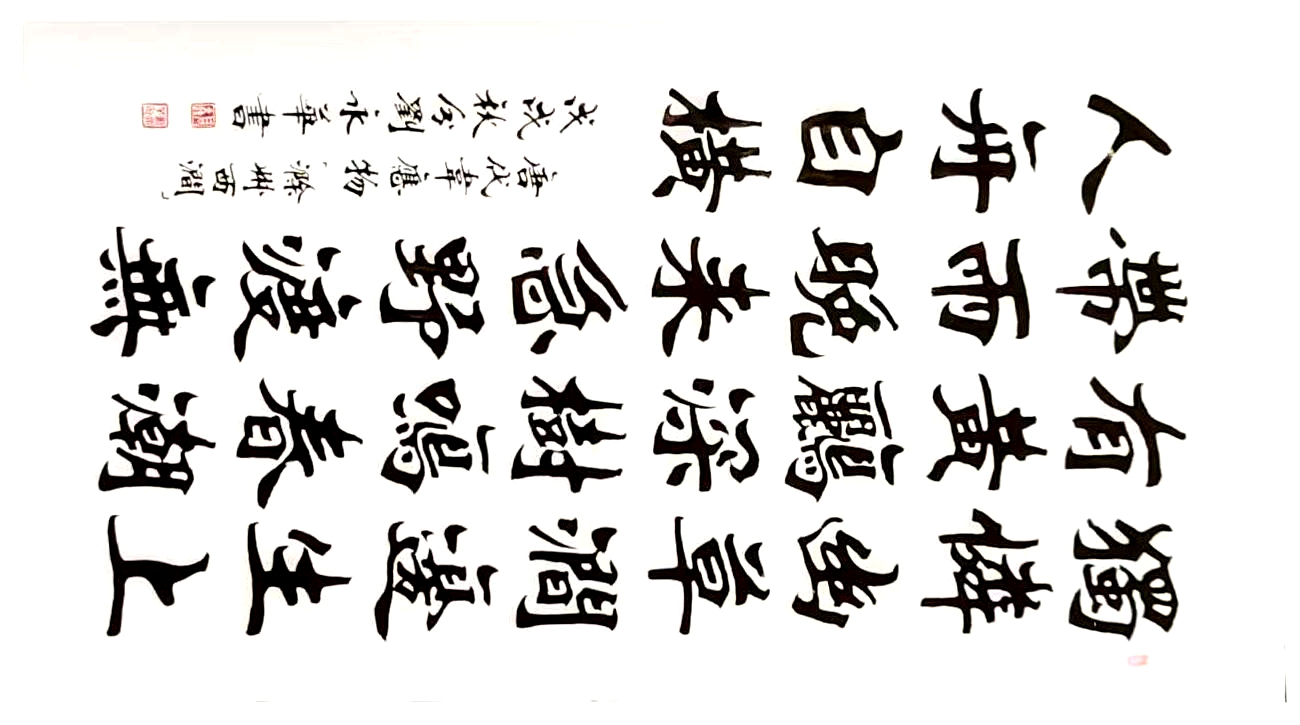 獨憐幽草澗邊生上
有黃鸝深樹鳴春潮
帶雨晚來急野渡無
人舟自橫
唐代韋應物「滁州西澗」
戊戌秋分劉永華書